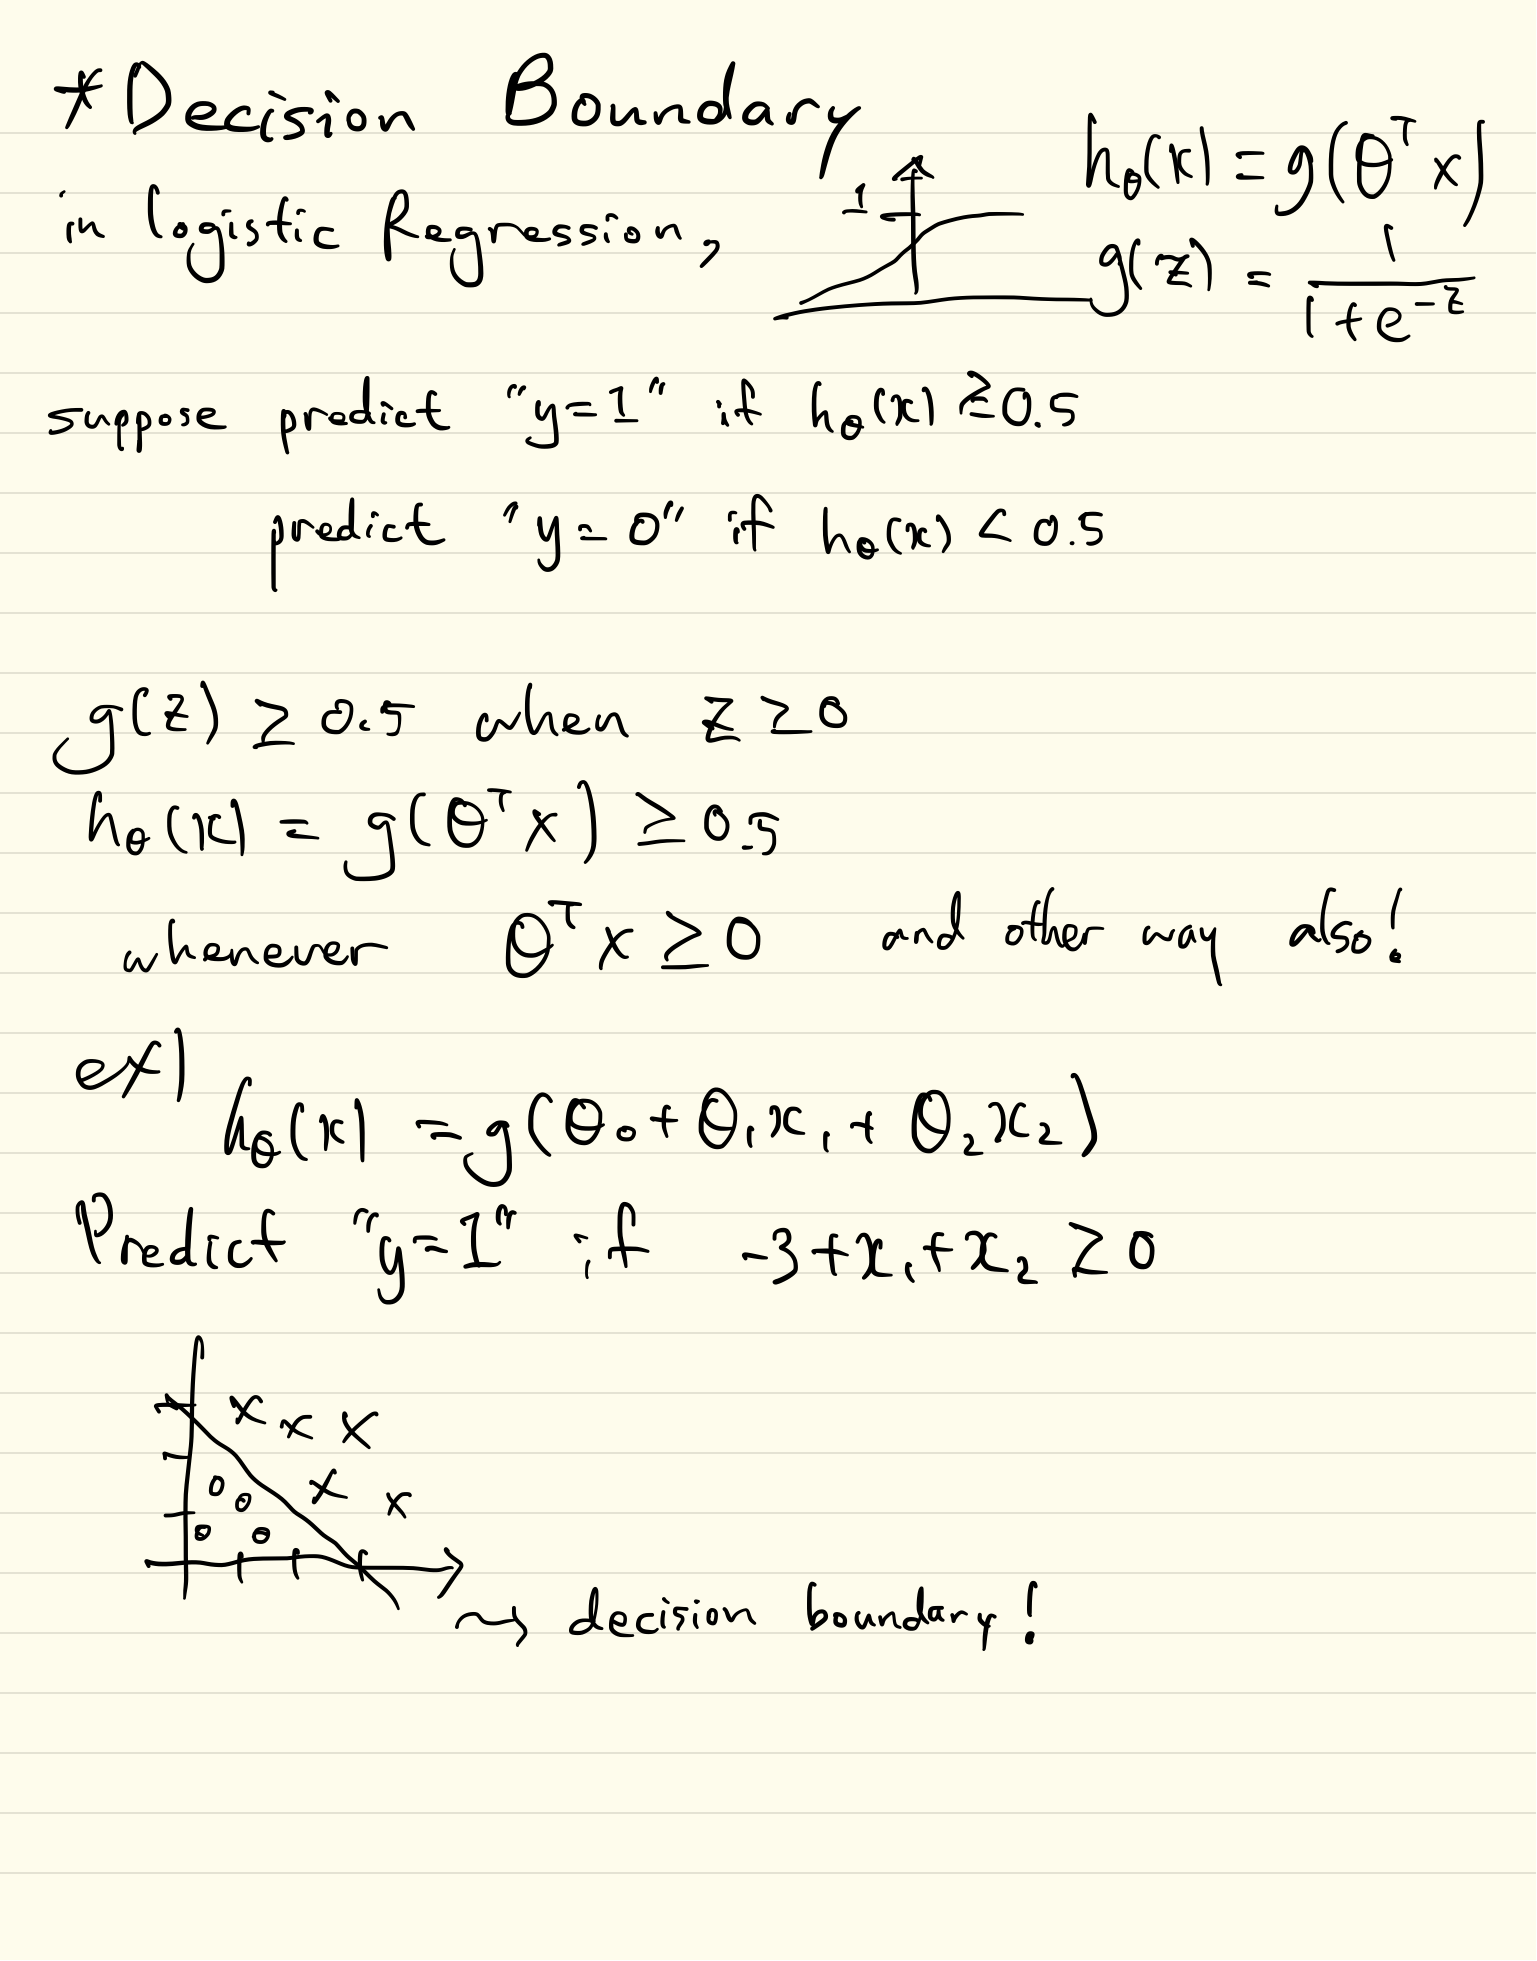 *Decision Boundary
in logistic Regression,
1
hθ(x) = g(θᵀx)
g(z) = 1/(1+e⁻ᶻ)
suppose predict "y=1" if hθ(x) ≥ 0.5
predict "y=0" if hθ(x) < 0.5
g(z) ≥ 0.5 when z ≥ 0
hθ(x) = g(θᵀx) ≥ 0.5
whenever θᵀx ≥ 0 and other way also!
ex)
hθ(x) = g(θ₀ + θ₁x₁ + θ₂x₂)
Predict "y=1" if -3+x₁+x₂ ≥ 0
→ decision boundary!